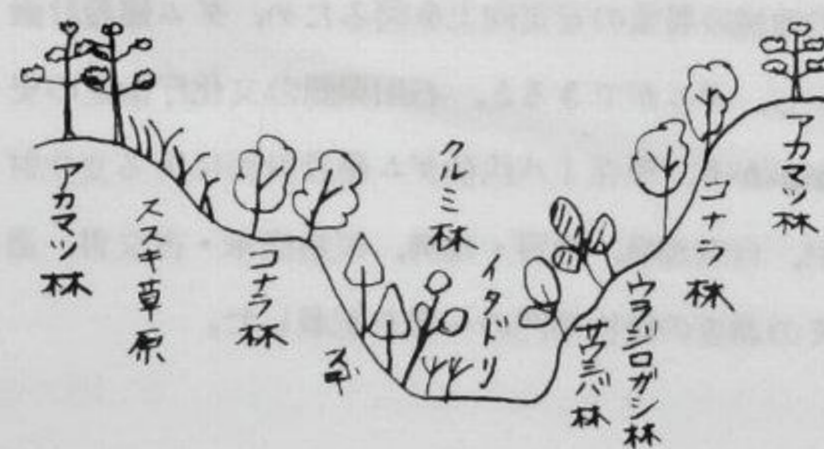 アカマツ林
ススキ草原
コナラ林
スギ
クルミ林
イタドリ
サワシバ林
ウラジロガシ林
コナラ林
アカマツ林